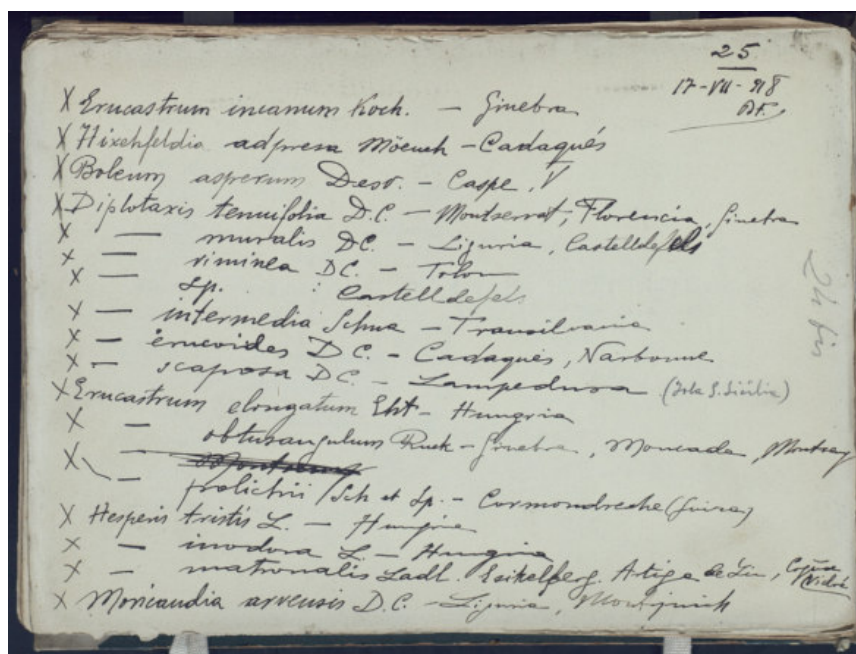 25
17-VII-918
X Erucastrum incanum Koch. - Ginebra
X Hixchfeldia adpresa Möench - Cadaqués
X Boleum asperum Desv. - Caspe, V
X Diplotaxis tenuifolia D.C. - Montserrat, Florencia, Ginebra
X — muralis D.C. - Liguria, Castelldefels
X — viminea D.C. - Tolon
X sp. : Castelldefels
X — intermedia Schur - Transilvania
X — erucoides D.C. - Cadaqués, Narbonne
X — scaposa D.C. - Lampedusa (Isla S. Sicilia)
X Erucastrum elongatum - Hungria
X — obtusangulum - Ginebra, Moncada,
X — Sch et Sp. - Cormondreche (Suiza)
X Hesperis tristis L. - Hungria
X — inodora L. - Hungria
X — matronalis Ladl. Artiga de Lin,
X Moricandia arvensis D.C. - Liguria, Montjuich
24 bis